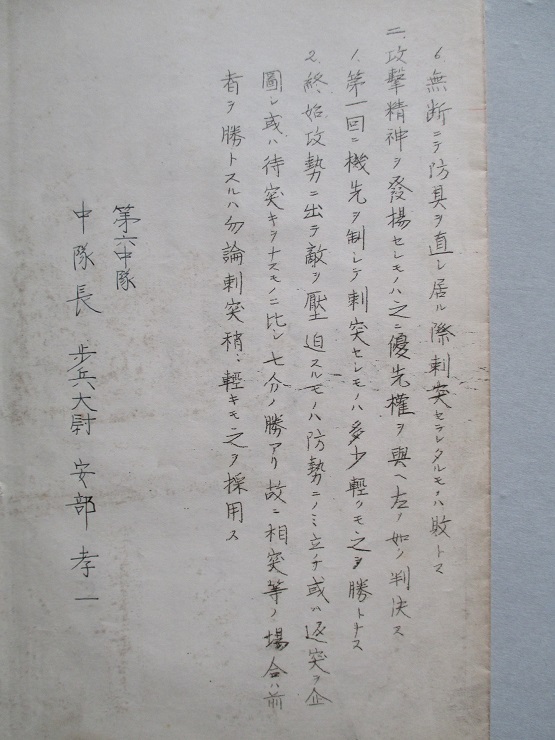 6. 無断ニテ防具ヲ直シ居ル際刺突セラレタルモノハ敗トス
二、攻撃精神ヲ發揚セシモノハ之ニ優先權ヲ與ヘ左ノ如ク判決ス
1. 第一回ニ機先ヲ制シテ刺突セシモノハ多少輕クモ之ヲ勝トナス
2. 終始攻勢ニ出テ敵ヲ壓迫スルモノハ防勢ニノミ立チ或ハ返突ヲ企
圖シ或ハ待突キヲナスモノニ比シ七分ノ勝アリ故ニ相突等ノ場合ハ前
者ヲ勝トスルハ勿論刺突稍〻輕キモ之ヲ採用ス
第六中隊
中隊長 歩兵大尉 安部孝一